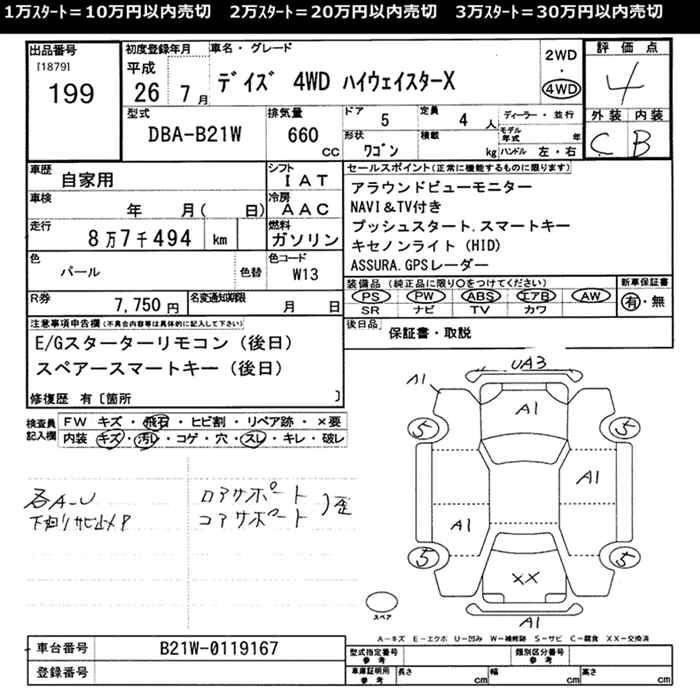 1万ｽﾀｰﾄ＝10万円以内売切　2万ｽﾀｰﾄ＝20万円以内売切　3万ｽﾀｰﾄ＝30万円以内売切
出品番号
[1879]
199
初度登録年月
平成
26 7月
車名・グレード
デイズ 4WD ハイウェイスターX
2WD
・
4WD
評価点
4
型式
DBA-B21W
排気量
660
CC
ドア
5
定員
4 人
形状
ワゴン
積載
kg
ディーラー・並行
モデル年式 年
ハンドル 左・右
外装 内装
C B
車歴
自家用
シフト
IAT
車検
年 月( 日)
冷房
AAC
走行
8万7千494 km
燃料
ガソリン
色
パール
色替
色コード
W13
R券
7,750円
名変通知期限
月 日
セールスポイント(正常に機能するものに限ります)
アラウンドビューモニター
NAVI＆TV付き
プッシュスタート.スマートキー
キセノンライト(HID)
ASSURA.GPSレーダー
装備品(純正品に限り○をつけてください)
PS PW ABS エアB AW
SR ナビ TV カワ
新車保証書
有・無
後日品
保証書・取説
注意事項申告欄(不具合内容等は具体的に記入して下さい)
E/Gスターターリモコン(後日)
スペアースマートキー(後日)
修復歴 有〔箇所 〕
検査員記入欄
FW キズ・飛石・ヒビ割・リペア跡・×要
内装 キズ・汚レ・コゲ・穴・スレ・キレ・破レ
各A-U
下廻りサビ止メP
ロアサポート
コアサポート
)歪
UA3
A1
A1
5
5
A1
A1
5
5
XX
A1
スペア
A－キズ E－エクボ U－凹み W－補修跡 S－サビ C－腐食 XX－交換済
車台番号
B21W-0119167
登録番号
型式指定番号
参考
類別区分番号
参考
車庫証明用
参考
長さ cm
幅 cm
高さ cm